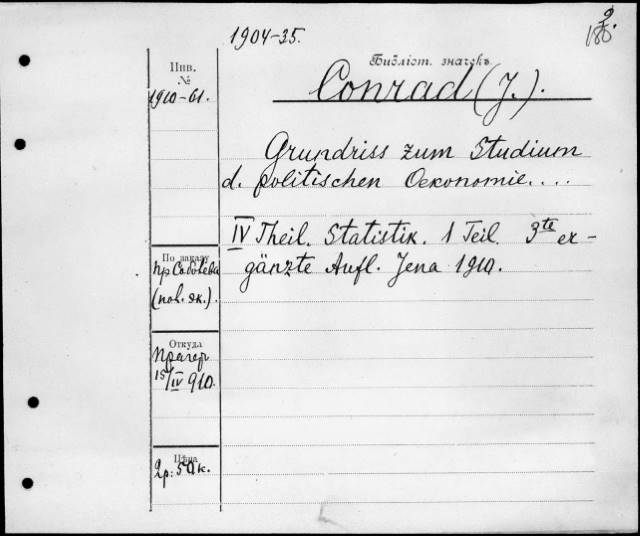 1904-35.
Библіот. значекъ
Conrad (J.).
Инв.
№
1910-61.
Grundriss zum Studium
d. politischen Oekonomie....
IV Theil. Statistik. 1 Teil. 3te er-
gänzte Aufl. Jena 1910.
По заказу
пр
(пол. эк.).
Откуда
Прагер
15/IV 910.
Цѣна
2р: 50к.